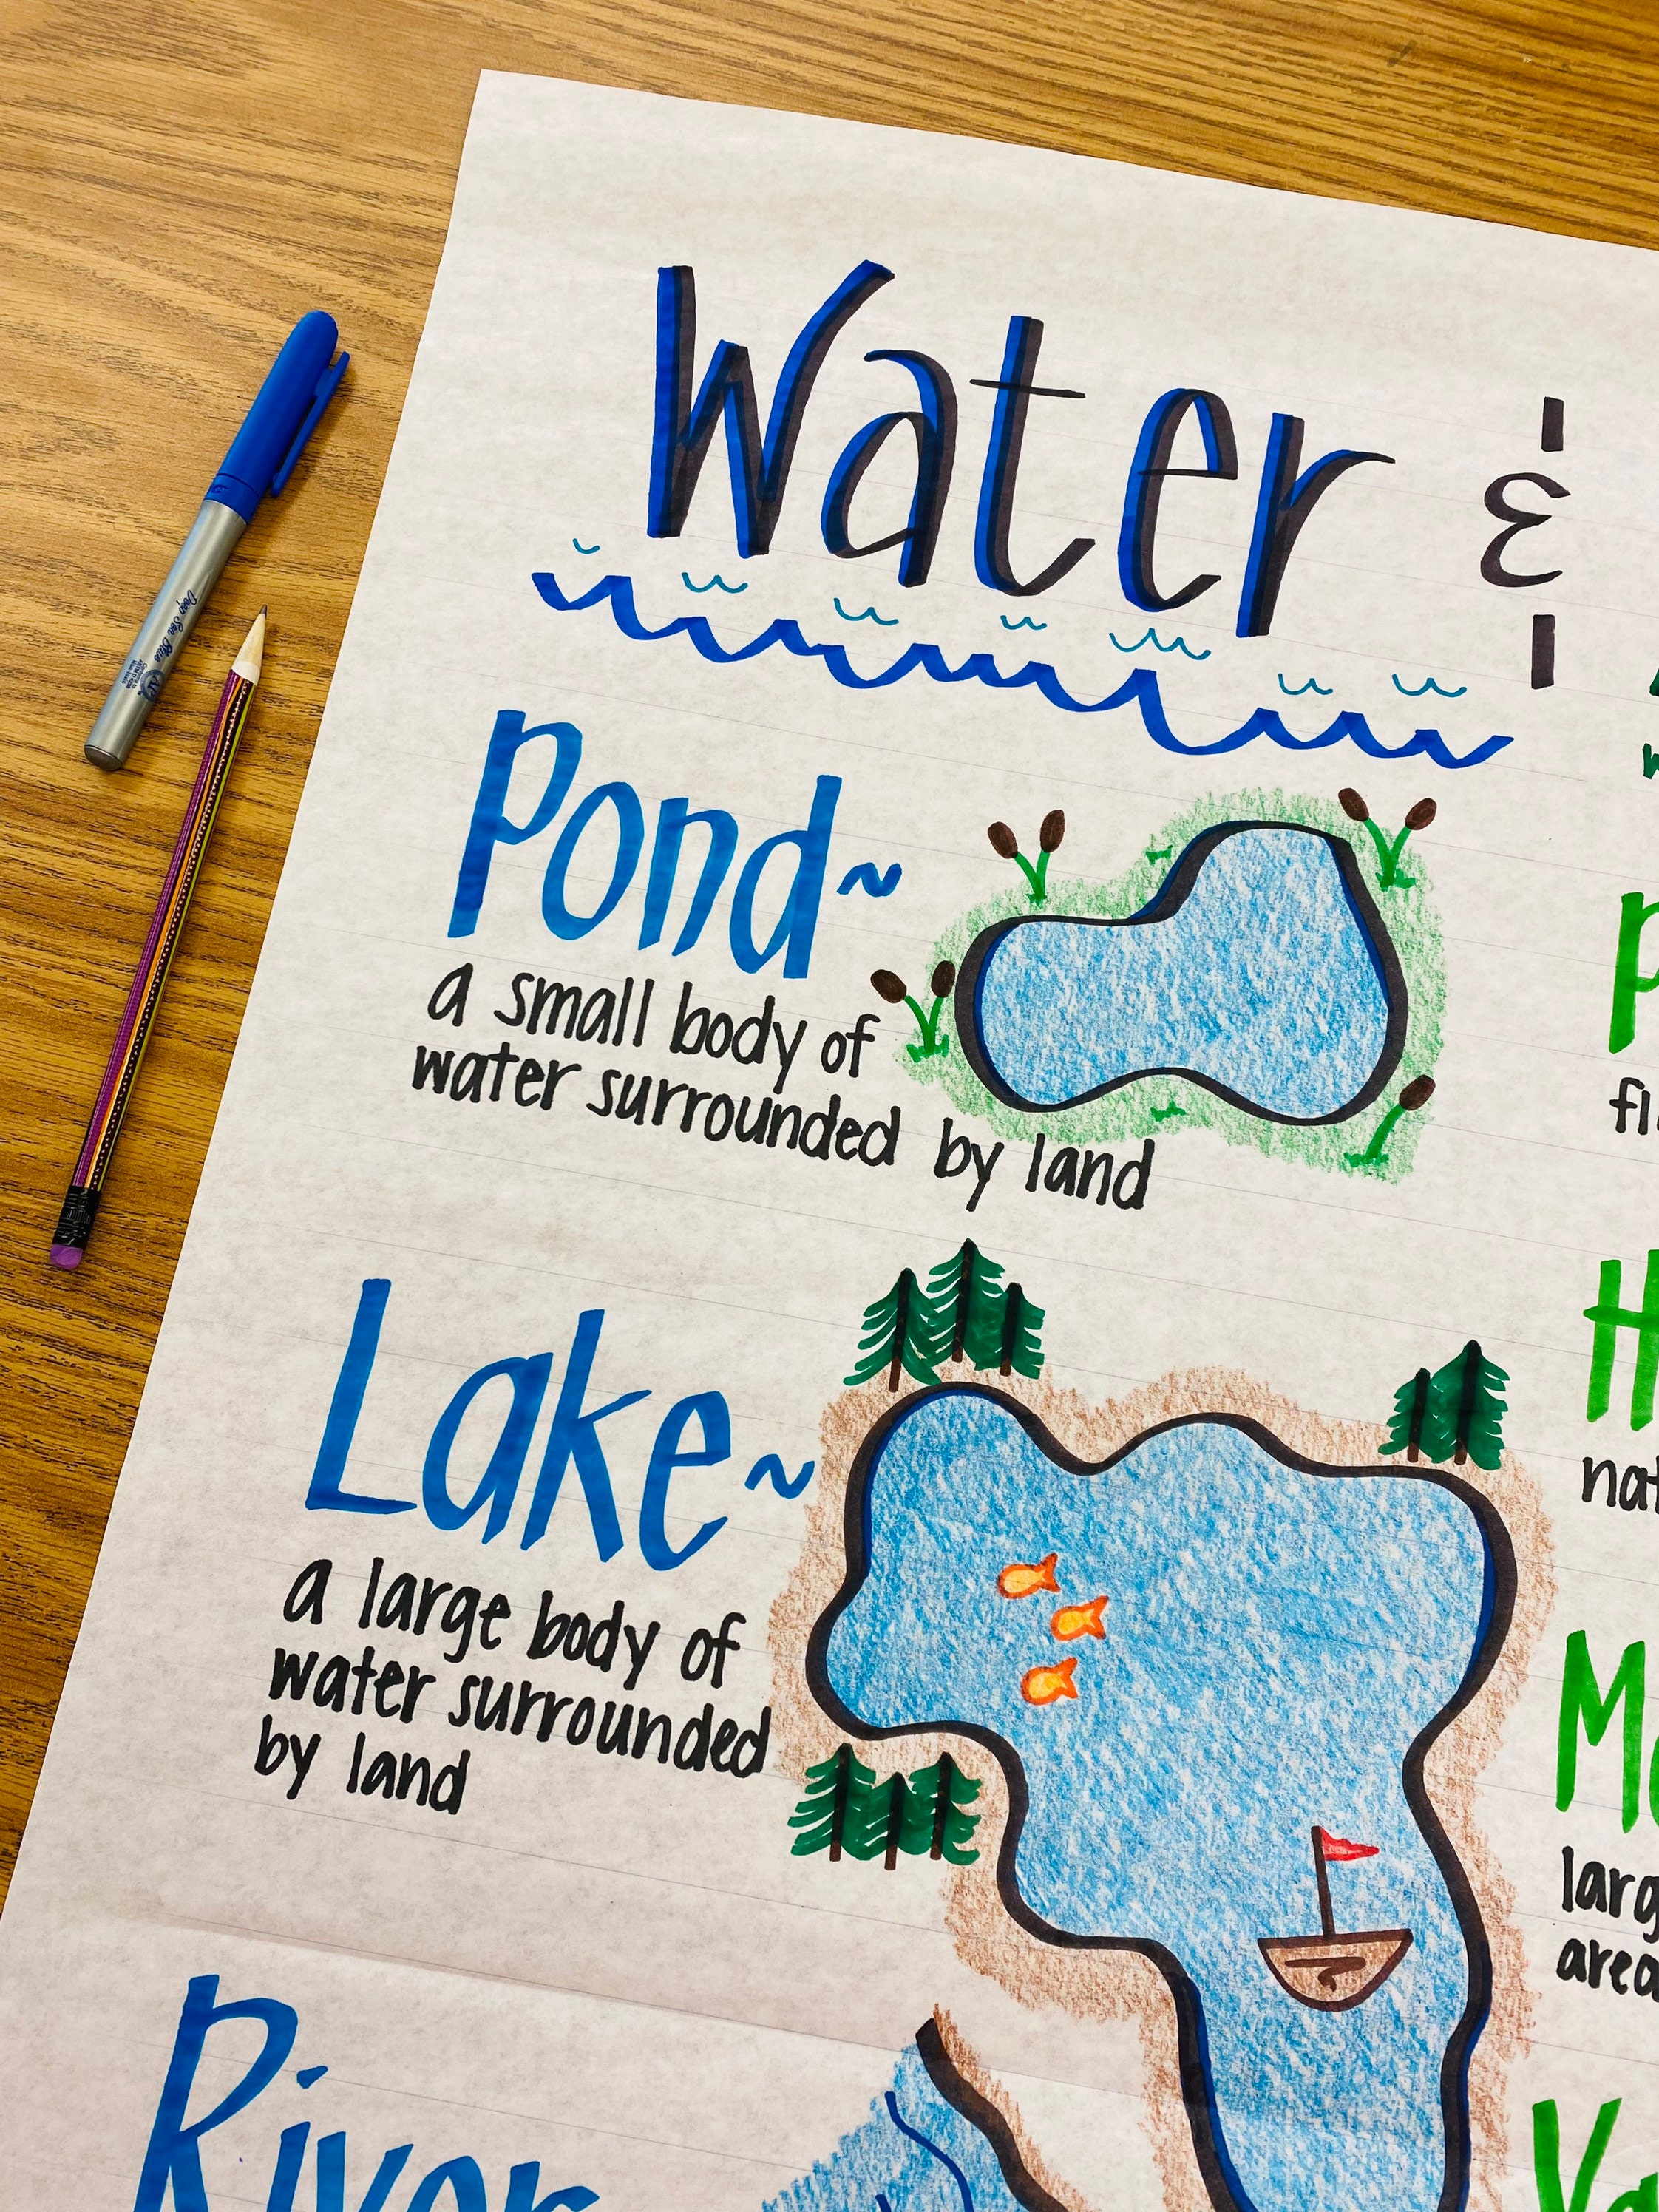 Water &
Pond~
a small body of
water surrounded by land
Lake~
a large body of
water surrounded
by land
River
P
H
M
larg
area
Va
Deep Sea Blue